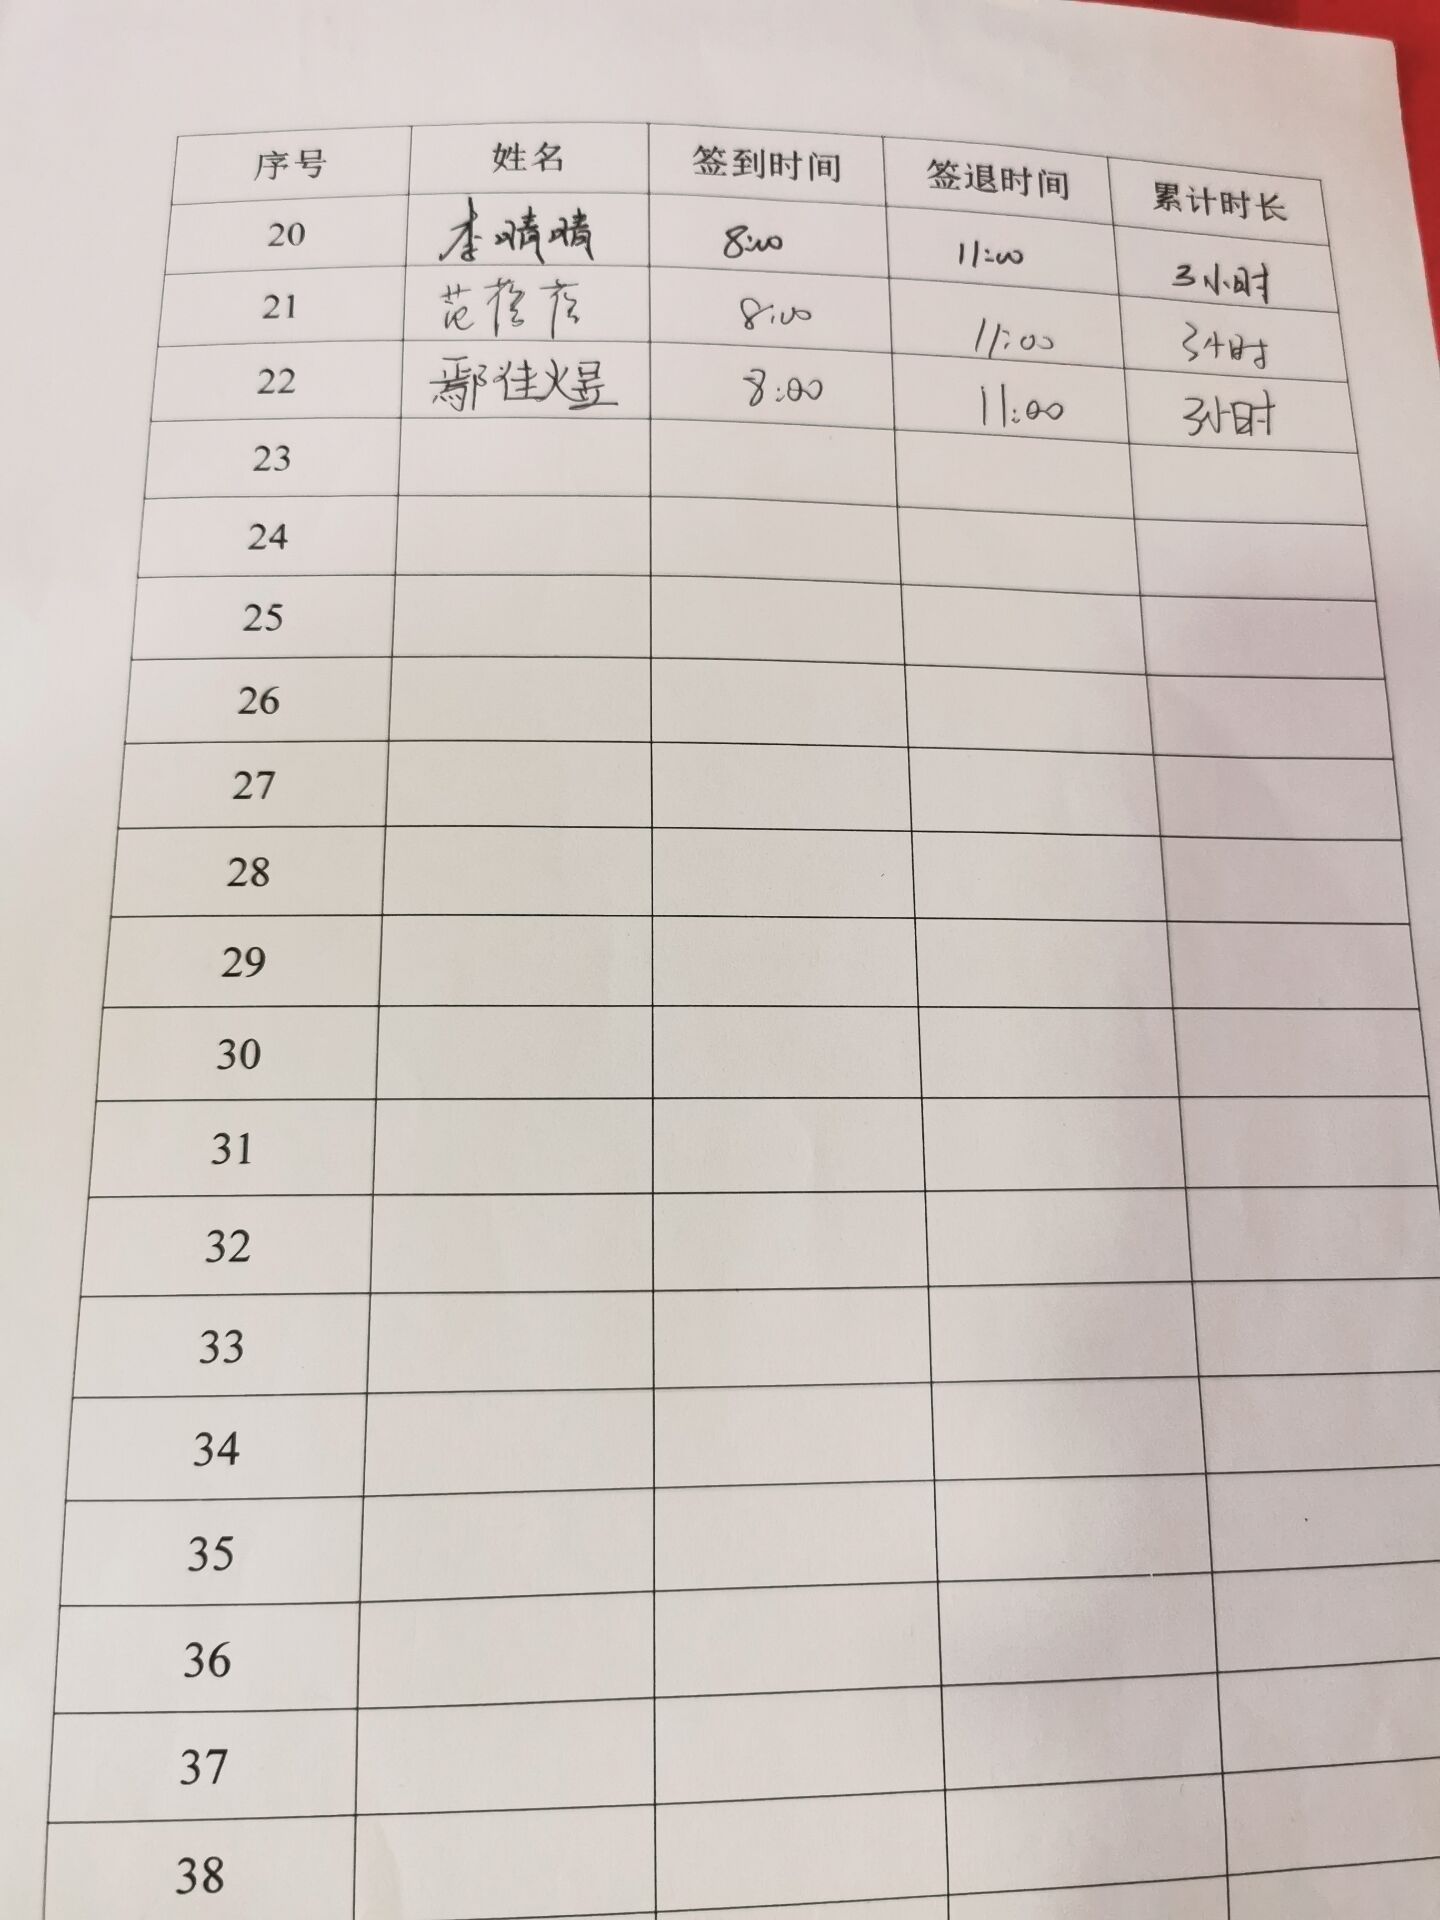 序号 姓名 签到时间 签退时间 累计时长
20 李晴晴 8:00 11:00 3小时
21 范 8:00 11:00 3小时
22 鄢佳煜 8:00 11:00 3小时
23
24
25
26
27
28
29
30
31
32
33
34
35
36
37
38